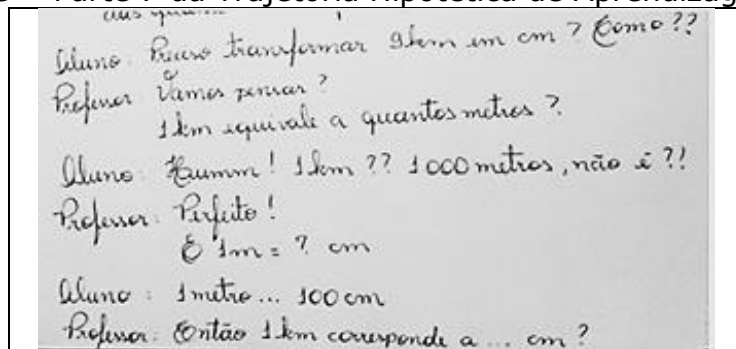 Parte I da Trajetória Hipotética de Aprendizag
Aluno: Preciso transformar 9km em cm? Como??
Professor: Vamos pensar?
1km equivale a quantos metros?
Aluno: Haumm! 1km?? 1000 metros, não é?!
Professor: Perfeito!
E 1m = ? cm
Aluno: 1 metro... 100 cm
Professor: Então 1km corresponde a ... cm?